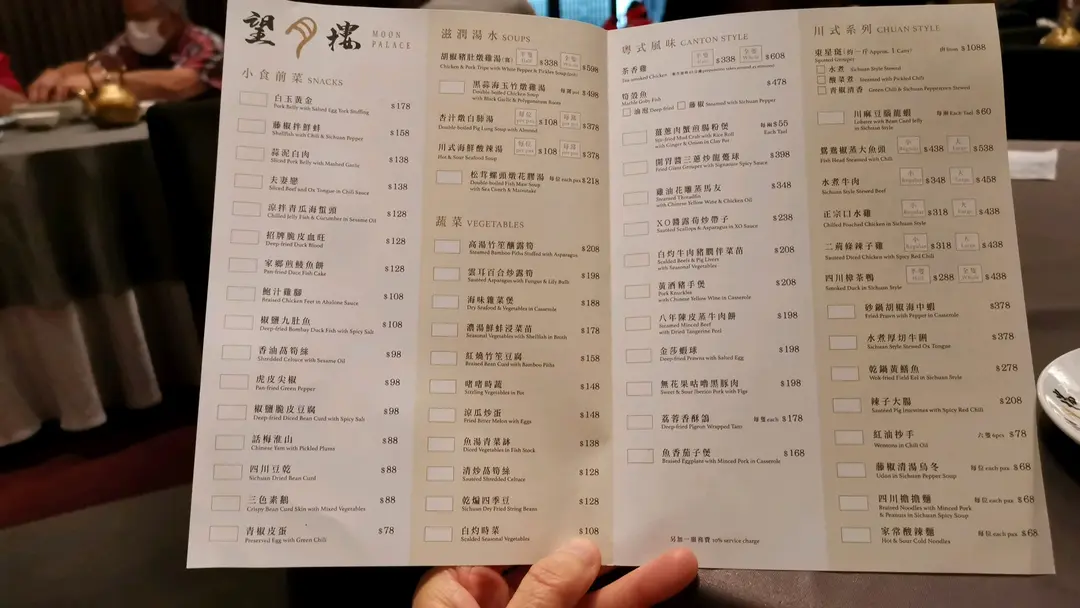 望月樓 MOON
PALACE
小食前菜 SNACKS
白玉黃金 $178
Pork Belly with Salted Egg Yolk Stuffing
藤椒拌鮮蚌 $158
Shellfish with Chili & Sichuan Pepper
蒜泥白肉 $138
Sliced Pork Belly with Mashed Garlic
夫妻戀 $138
Sliced Beef and Ox Tongue in Chili Sauce
涼拌青瓜海蜇頭 $128
Chilled Jelly Fish & Cucumber in Sesame Oil
招牌脆皮血旺 $128
Deep-fried Duck Blood
家鄉煎鯪魚餅 $128
Pan-fried Dace Fish Cake
鮑汁雞腳 $108
Braised Chicken Feet in Abalone Sauce
椒鹽九肚魚 $108
Deep-fried Bombay Duck Fish with Spicy Salt
香油萵筍絲 $98
Shredded Celtuce with Sesame Oil
虎皮尖椒 $98
Pan-fried Green Pepper
椒鹽脆皮豆腐 $98
Deep-fried Diced Bean Curd with Spicy Salt
話梅淮山 $88
Chinese Yam with Pickled Plums
四川豆乾 $88
Sichuan Dried Bean Curd
三色素鵝 $88
Crispy Bean Curd Skin with Mixed Vegetables
青椒皮蛋 $78
Preserved Egg with Green Chili
滋潤湯水 SOUPS
胡椒豬肚燉雞湯 $338 $598
Chicken & Pork Tripe with White Pepper & Pickles Soup
黑蒜海玉竹燉雞湯 $498
Double-boiled Chicken Soup
with Black Garlic & Polygonatum Room
杏汁燉白肺湯 $108 $378
Double-boiled Pig Lung Soup with Almond
川式海鮮酸辣湯 $108 $378
Hot & Sour Seafood Soup
松茸螺頭燉花膠湯 每位 each pax $218
Double-boiled Fish Maw Soup
with Sea Conch & Matsutake
蔬菜 VEGETABLES
高湯竹笙釀露筍 $208
Steamed Bamboo Piths Stuffed with Asparagus
雲耳百合炒露筍 $198
Sautéed Asparagus with Fungus & Lily Bulb
海味雜菜煲 $188
Dry Seafood & Vegetables in Casserole
濃湯鮮蚌浸菜苗 $178
Seasonal Vegetables with Shellfish in Broth
紅燒竹笙豆腐 $158
Braised Bean Curd with Bamboo Piths
啫啫時蔬 $148
Sizzling Vegetables in Pot
涼瓜炒蛋 $148
Fried Bitter Melon with Eggs
魚湯青菜缽 $138
Diced Vegetables in Fish Stock
清炒萵筍絲 $128
Sautéed Shredded Celtuce
乾煸四季豆 $128
Sichuan Dry Fried String Beans
白灼時菜 $108
Scalded Seasonal Vegetables
粵式風味 CANTON STYLE
茶香雞 $338 $608
Tea-smoked Chicken
筍殼魚 $478
Marble Goby Fish
油泡 Deep-fried 藤椒 Steamed with Sichuan Pepper
薑蔥肉蟹煎腸粉煲 每兩 $55
Stir-fried Mud Crab with Rice Roll Each Tael
with Ginger & Onion in Clay Pot
開胃醬三蔥炒龍躉球 $398
Fried Giant Grouper with Signature Spicy Sauce
雞油花雕蒸馬友 $348
Steamed Threadfin
with Chinese Yellow Wine & Chicken Oil
XO醬露筍炒帶子 $238
Sautéed Scallops & Asparagus in XO Sauce
白灼牛肉豬膶伴菜苗 $208
Scalded Beef & Pig Livers
with Seasonal Vegetables
黃酒豬手煲 $208
Pork Knuckles
with Chinese Yellow Wine in Casserole
八年陳皮蒸牛肉餅 $198
Steamed Minced Beef
with Dried Tangerine Peel
金莎蝦球 $198
Deep-fried Prawns with Salted Egg
無花果咕嚕黑豚肉 $198
Sweet & Sour Iberico Pork with Figs
荔蓉香酥鴿 每隻 each $178
Deep-fried Pigeon Wrapped Taro
魚香茄子煲 $168
Braised Eggplant with Minced Pork in Casserole
另加一服務費 10% service charge
川式系列 CHUAN STYLE
東星斑 (約一斤 Approx. 1 Catty) 由 from $1088
Spotted Grouper
水煮 Sichuan Style Stewed
酸菜煮 Steamed with Pickled Chili
青椒清香 Green Chili & Sichuan Peppercorn Stewed
川麻豆腦龍蝦 每兩 Each Tael $60
Lobster with Bean Curd Jelly
in Sichuan Style
鴛鴦椒蒸大魚頭 小 Regular $438 大 Large $538
Fish Head Steamed with Chili
水煮牛肉 小 Regular $348 大 Large $458
Sichuan Style Stewed Beef
正宗口水雞 小 Regular $318 大 Large $438
Chilled Poached Chicken in Sichuan Style
二荊條辣子雞 小 Regular $318 大 Large $438
Sautéed Diced Chicken with Spicy Red Chili
四川樟茶鴨 半隻 Half $288 全隻 Whole $438
Smoked Duck in Sichuan Style
砂鍋胡椒海中蝦 $378
Fried Prawn with Pepper in Casserole
水煮厚切牛脷 $378
Sichuan Style Stewed Ox Tongue
乾鍋黃鱔魚 $278
Wok-fried Field Eel in Sichuan Style
辣子大腸 $208
Sautéed Pig Intestines with Spicy Red Chili
紅油杪手 六隻 6pcs $78
Wontons in Chili Oil
藤椒清湯烏冬 每位 each pax $68
Udon in Sichuan Pepper Soup
四川擔擔麵 每位 each pax $68
Braised Noodles with Minced Pork
& Peanuts in Sichuan Spicy Soup
家常酸辣麵 每位 each pax $68
Hot & Sour Cold Noodles